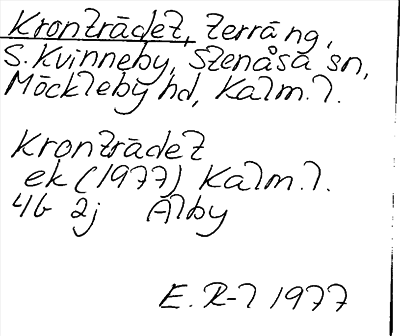 Kronträdet, terräng,
S. Kvinneby, Stenåsa sn,
Möckleby hd, Kalm. l.
Kronträdet
ek (1977) Kalm. l.
4G 2j Alby
E. R-l 1977